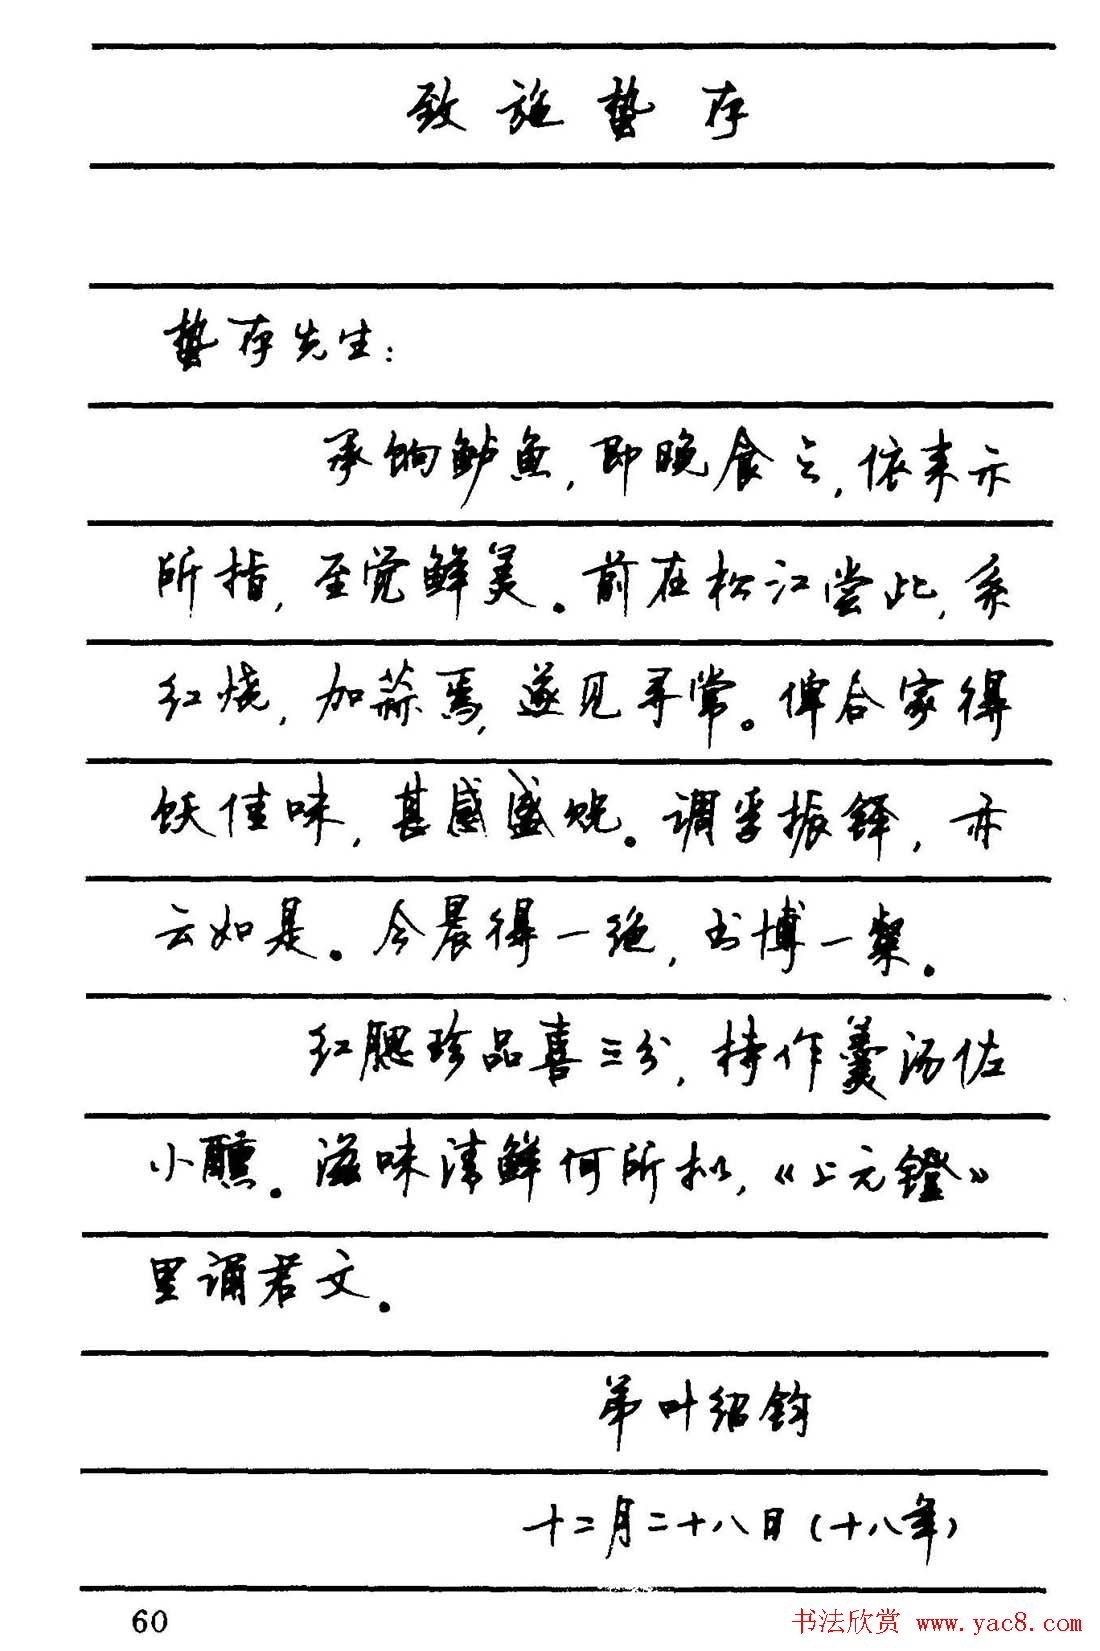 致施蛰存
蛰存先生：
承饷鲈鱼，即晚食之，依来示
所指，至觉鲜美。前在松江尝此，系
红烧，加蒜焉，遂见寻常。俾合家得
饫佳味，甚感盛贶。调孚振铎，亦
云如是。今晨得一绝，书博一粲。
红腮珍品喜三分，持作羹汤佐
小醺。滋味清鲜何所拟，《上元镫》
里诵君文。
弟叶绍钧
十二月二十八日（十八年）
60
书法欣赏 www.yac8.com